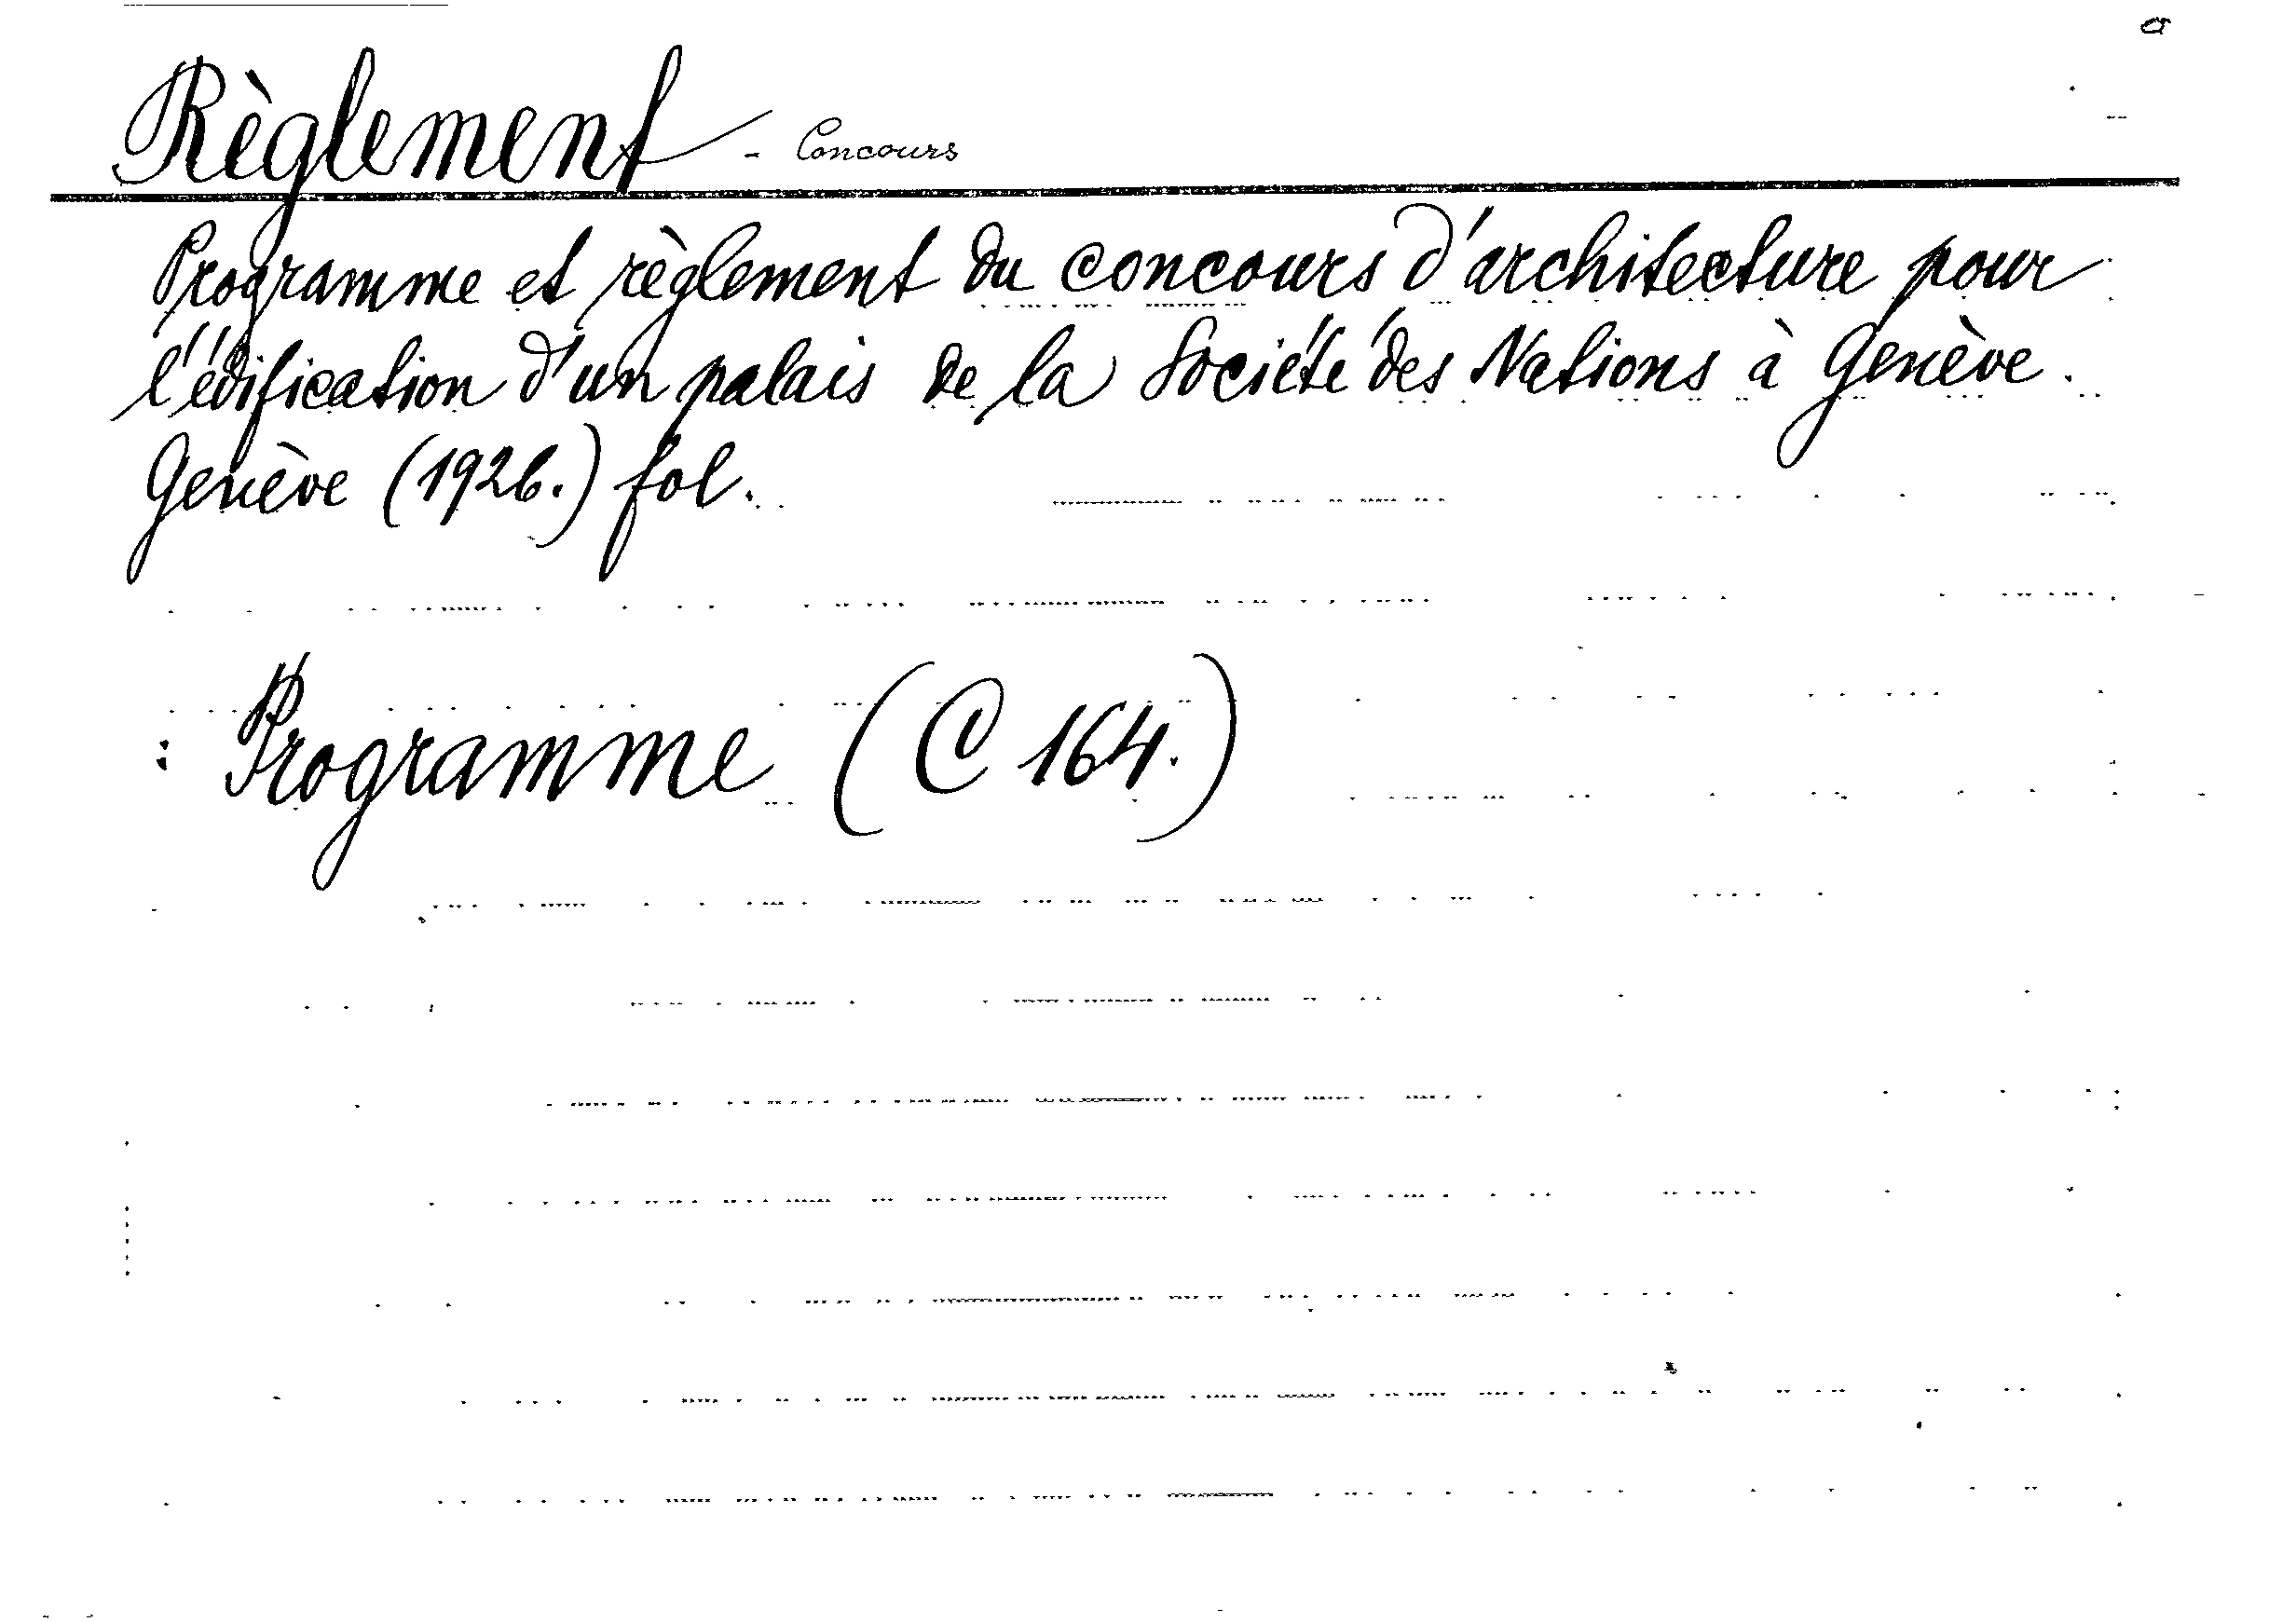 Règlement - Concours
Programme et règlement du concours d'architecture pour
l'édification d'un palais de la Société des Nations à Genève.
Genève (1926.) fol.
: Programme (C 164.)